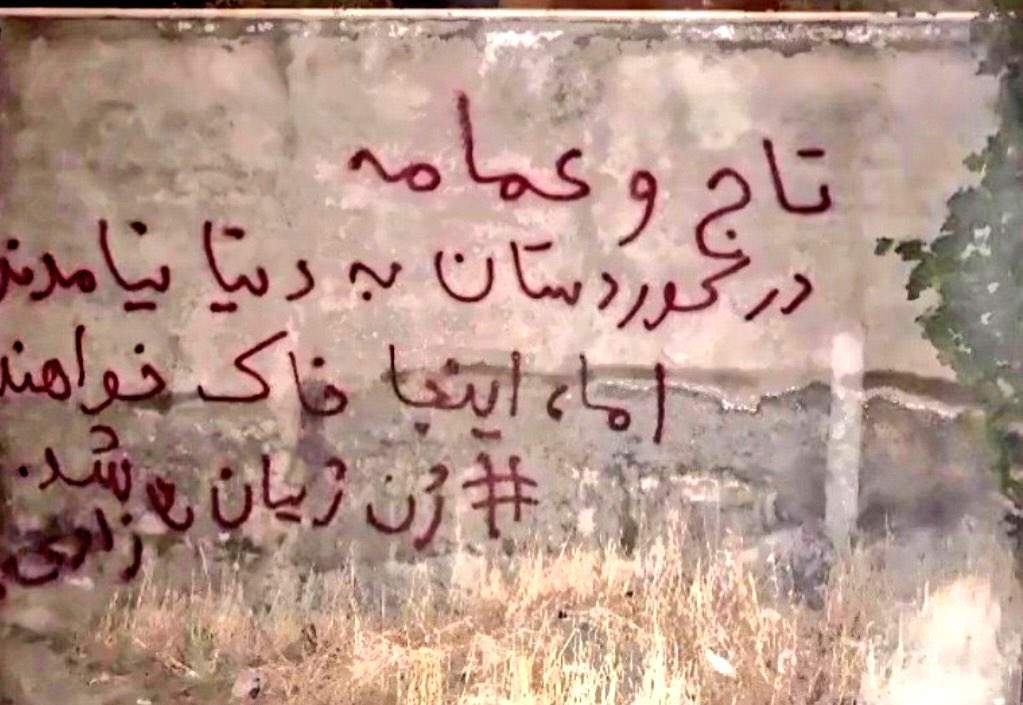 تاج و عمامه
در کوردستان به دنیا نیامدند
اما، اینجا خاک خواهند
شد.
#ژن ژیان
ئازادی